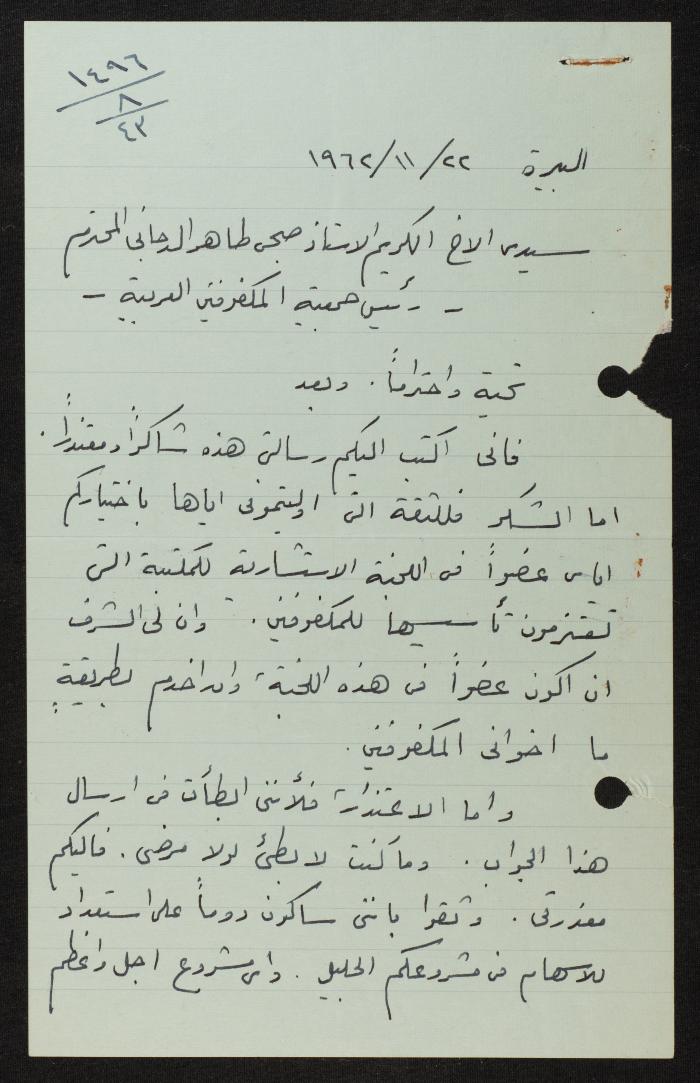 ١٤٩٦
٨
٤٣
البيرة ٢٢/١١/١٩٦٢
سيدي الاخ الكريم الاستاذ صبحي طاهر الدجاني المحترم
- رئيس جمعية المكفوفين العربية -
تحية واحتراماً . وبعد
فاني اكتب اليكم رسالتي هذه شاكراً ومعتذراً .
اما الشكر فللثقة التي اوليتموني اياها باختياركم
اياي عضواً في اللجنة الاستشارية للمكتبة التي
تعتزمون تأسيسها للمكفوفين . وان لي الشرف
ان اكون عضواً في هذه اللجنة، وان اخدم بطريقةٍ
ما اخواني المكفوفين .
واما الاعتذار، فلأنني ابطأت في ارسال
هذا الجواب . وما كنت لابطئ لولا مرضي . فاليكم
معذرتي . وثقوا بانني ساكون دوماً على استعداد
للاسهام في مشروعكم الجليل . واي مشروع اجل واعظم